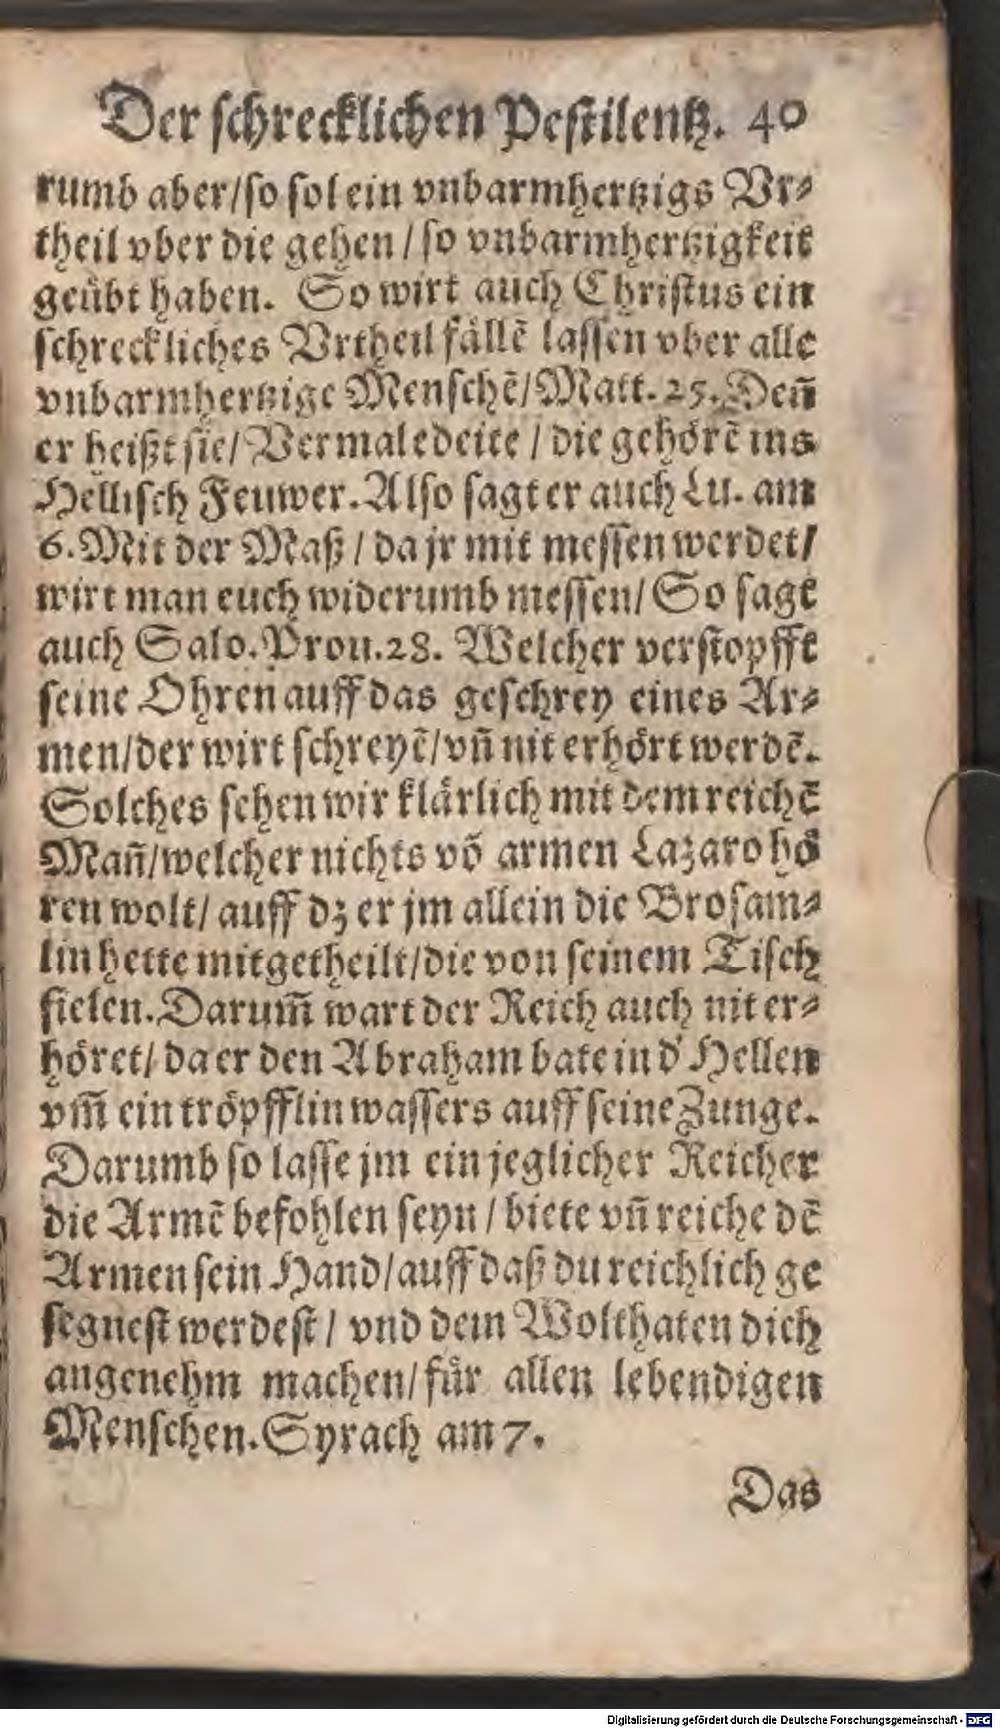 Der schrecklichen Pestilentz. 40
rumb aber/so sol ein vnbarmhertzigs Vr⸗
theil vber die gehen/so vnbarmhertzigkeit
geübt haben. So wirt auch Christus ein
schreckliches Vrtheil fällẽ lassen vber alle
vnbarmhertzige Menschẽ/Matt. 25. Deñ
er heißt sie/Vermaledeite/die gehörẽ ins
Hellisch Feuwer. Also sagt er auch Lu. am
6. Mit der Maß/da jr mit messen werdet/
wirt man euch widerumb messen/So sagt
auch Salo. Prou. 28. Welcher verstopfft
seine Ohren auff das geschrey eines Ar⸗
men/der wirt schreyẽ/vñ nit erhört werdẽ.
Solches sehen wir klärlich mit dem reichẽ
Mañ/welcher nichts võ armen Lazaro hö
ren wolt/auff dz er jm allein die Brosam⸗
lin hette mitgetheilt/die von seinem Tisch
fielen. Darum̃ wart der Reich auch nit er⸗
höret/da er den Abraham bate in d' Hellen
vm̃ ein tröpfflin wassers auff seine Zunge.
Darumb so lasse jm ein jeglicher Reicher
die Armẽ befohlen seyn/biete vñ reiche dẽ
Armen sein Hand/auff daß du reichlich ge
segnest werdest/vnd dein Wolthaten dich
angenehm machen/für allen lebendigen
Menschen. Syrach am 7.
Das
Digitalisierung gefördert durch die Deutsche Forschungsgemeinschaft - DFG